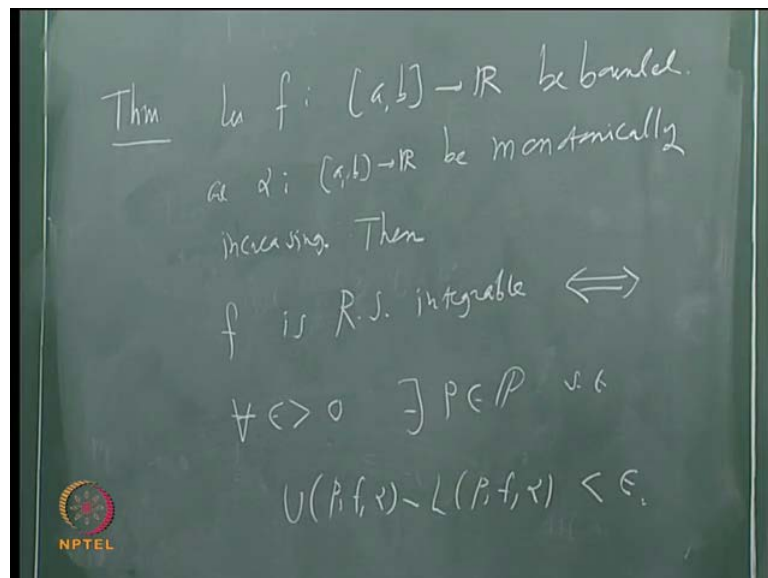 Thm Let f : [a, b] → ℝ be bounded.
and α : [a, b] → ℝ be monotonically
increasing. Then
f is R.S. integrable ⟺
∀ ε > 0 ∃ P ∈ ℙ s.t
U(P, f, α) - L(P, f, α) < ε.
NPTEL